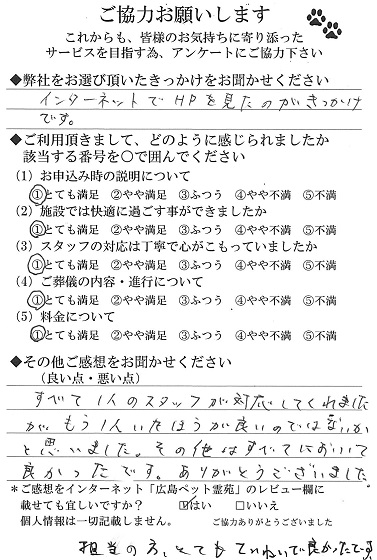 ご協力お願いします
これからも、皆様のお気持ちに寄り添った
サービスを目指す為、アンケートにご協力下さい
◆弊社をお選び頂いたきっかけをお聞かせください
インターネットでHPを見たのがきっかけ
です。
◆ご利用頂きまして、どのように感じられましたか
該当する番号を〇で囲んでください
(1) お申込み時の説明について
①とても満足 ②やや満足 ③ふつう ④やや不満 ⑤不満
(2) 施設では快適に過ごす事ができましたか
①とても満足 ②やや満足 ③ふつう ④やや不満 ⑤不満
(3) スタッフの対応は丁寧で心がこもっていましたか
①とても満足 ②やや満足 ③ふつう ④やや不満 ⑤不満
(4) ご葬儀の内容・進行について
①とても満足 ②やや満足 ③ふつう ④やや不満 ⑤不満
(5) 料金について
①とても満足 ②やや満足 ③ふつう ④やや不満 ⑤不満
◆その他ご感想をお聞かせください
(良い点・悪い点)
すべて1人のスタッフが対応してくれました
が、もう1人いたほうが良いのではないか
と思いました。その他はすべてにおいて
良かったです。ありがとうございました。
*ご感想をインターネット「広島ペット霊苑」のレビュー欄に
載せても宜しいですか? ☑はい □いいえ
個人情報は一切記載しません。 ご協力ありがとうございました
担当の方、とてもていねいで良かったです